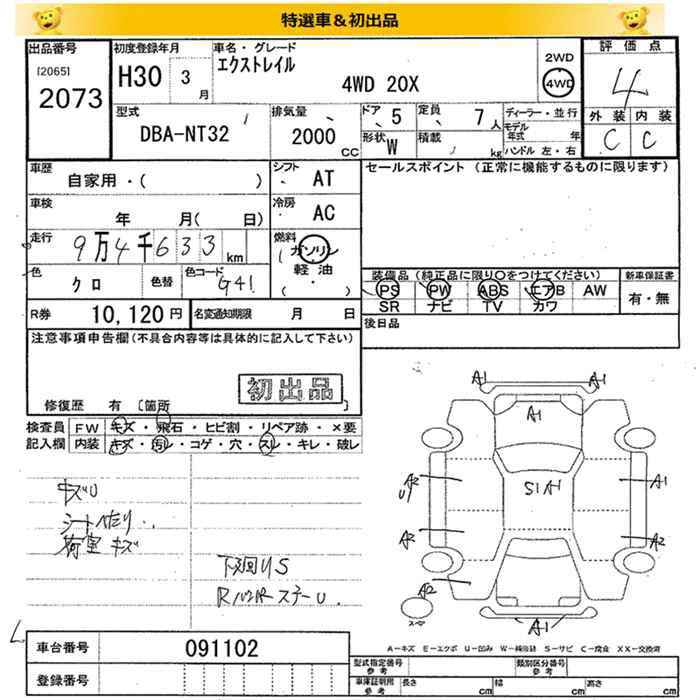 特選車＆初出品
出品番号
[2065]
2073
初度登録年月
H30 3月
車名・グレード
エクストレイル
4WD 20X
2WD
4WD
評価点
4
外装 内装
C C
型式
DBA-NT32
排気量
2000 CC
ドア 5
定員 7人
形状 W
積載 kg
ディーラー・並行
モデル年式 年
ハンドル 左・右
車歴
自家用・( )
シフト AT
セールスポイント（正常に機能するものに限ります）
車検
年 月( 日)
冷房 AC
走行
9万4千633 km
燃料
ガソリン
軽油
( ・ )
色
クロ
色替
色コード G41
装備品（純正品に限り○をつけてください）
PS PW ABS エアB AW
SR ナビ TV カワ
新車保証書
有・無
R券 10,120円
名変通知期限 月 日
後日品
注意事項申告欄(不具合内容等は具体的に記入して下さい)
初出品
修復歴 有 〔箇所 〕
検査員記入欄
FW キズ・飛石・ヒビ割・リペア跡・×要
内装 キズ・汚レ・コゲ・穴・スレ・キレ・破レ
キズU
シートへたり
荷室キズ
下廻りS
RバンパーステーU
A1 A1
A1
S1 A1
A2 U1 A1
A2 A2
A2
A1
スペア
A－キズ E－エクボ U－凹み W－補修跡 S－サビ C－腐食 XX－交換済
車台番号 091102
登録番号
型式指定番号 参考
類別区分番号 参考
車庫証明用 参考 長さ cm 幅 cm 高さ cm